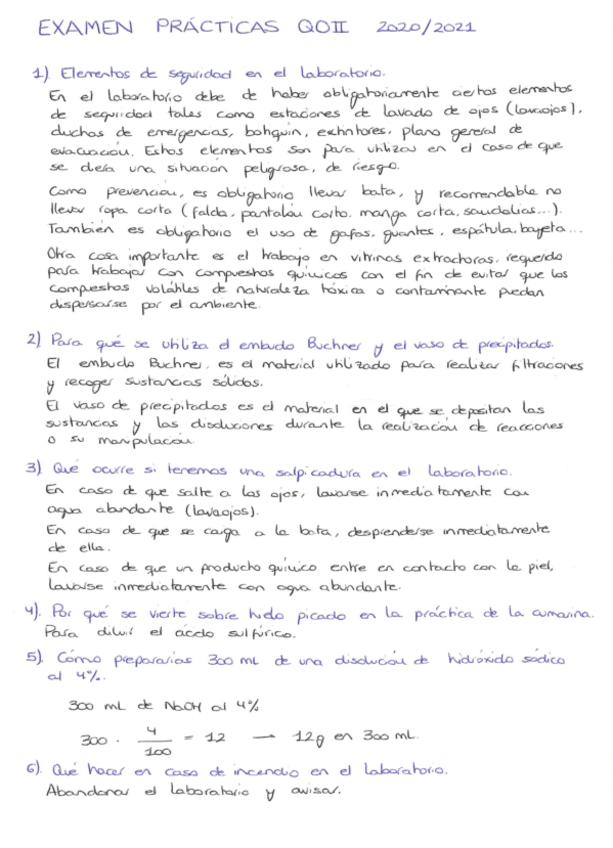 EXAMEN PRÁCTICAS QOII 2020/2021
1) Elementos de seguridad en el laboratorio.
En el laboratorio debe de haber obligatoriamente ciertos elementos
de seguridad tales como estaciones de lavado de ojos (lavaojos),
duchas de emergencias, botiquín, extintores, plano general de
evacuación. Estos elementos son para utilizar en el caso de que
se diera una situación peligrosa, de riesgo.
Como prevención, es obligatorio llevar bata, y recomendable no
llevar ropa corta (falda, pantalón corto, manga corta, sandalias...).
También es obligatorio el uso de gafas, guantes, espátula, bayeta...
Otra cosa importante es el trabajo en vitrinas extractoras, requerido
para trabajar con compuestos químicos con el fin de evitar que los
compuestos volátiles de naturaleza tóxica o contaminante puedan
dispersarse por el ambiente.
2) Para qué se utiliza el embudo Buchner y el vaso de precipitados.
El embudo Buchner, es el material utilizado para realizar filtraciones
y recoger sustancias sólidas.
El vaso de precipitados es el material en el que se depositan las
sustancias y las disoluciones durante la realización de reacciones
o su manipulación.
3) Qué ocurre si tenemos una salpicadura en el laboratorio.
En caso de que salte a los ojos, lavarse inmediatamente con
agua abundante (lavaojos).
En caso de que se caiga a la bata, desprenderse inmediatamente
de ella.
En caso de que un producto químico entre en contacto con la piel,
lavarse inmediatamente con agua abundante.
4). Por qué se vierte sobre hielo picado en la práctica de la cumarina.
Para diluir el ácido sulfúrico.
5). Cómo prepararías 300 mL de una disolución de hidróxido sódico
al 4%.
300 mL de NaOH al 4%
300 · 4/100 = 12 → 12g en 300 mL.
6). Qué hacer en caso de incendio en el laboratorio.
Abandonar el laboratorio y avisar.